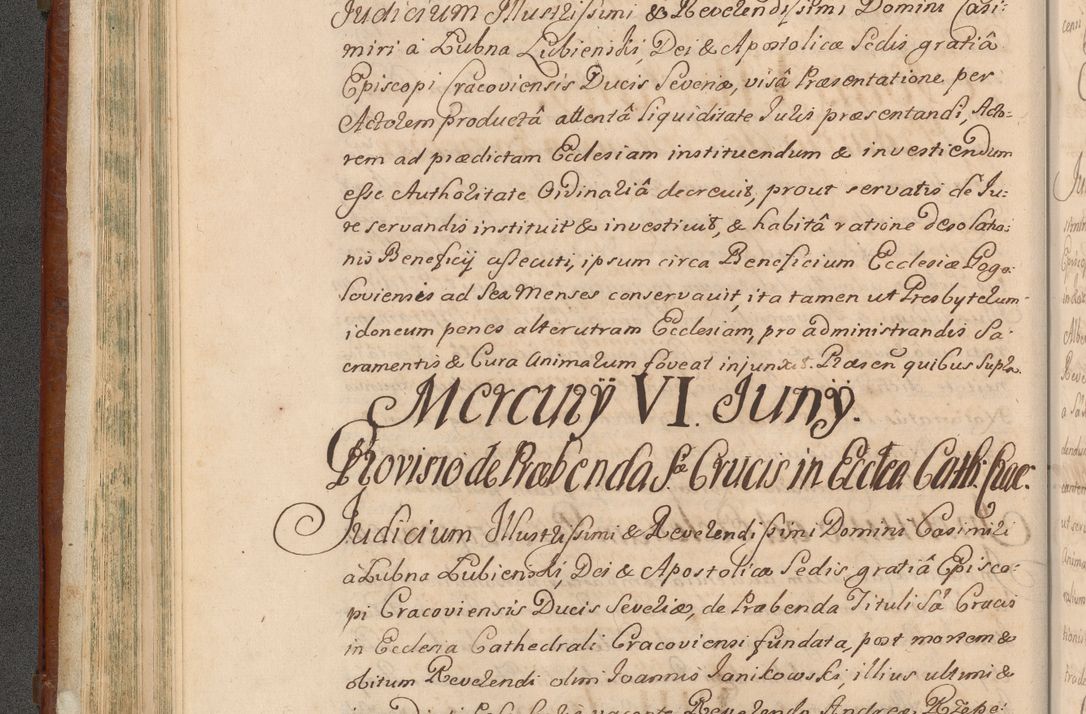 Judicium Illustrissimi & Reverendissimi Domini Casi-
miri â Lubna Lubienski, Dei & Apostolicæ Sedis gratiâ
Episcopi Cracoviensis Ducis Severiæ, visâ Præsentatione per
Actorem productâ attentâ liquiditate Juris præsentandi, Acto-
rem ad prædictam Ecclesiam instituendum & investiendum
esse Authoritate Ordinariâ decrevit, prout servatis de Ju-
re servandis instituit & investivit, & habitâ ratione desolatio-
nis Beneficij assecuti, ipsum circa Beneficium Ecclesiæ Gogo-
loviensis ad Sex Menses conservavit, ita tamen ut Presbyterum
idoneum penes alterutram Ecclesiam, pro administrandis Sa-
cramentis & Cura Animarum foveat injunxit. Præsen̄ quibus supra.
Mercurij VI. Junij.
Provisio de Præbenda S. Crucis in Ecclea Cath: Crac:
Judicium Illustrissimi & Reverendissimi Domini Casimiri
a Lubna Lubienski, Dei & Apostolicæ Sedis gratiâ Episco-
pi Cracoviensis Ducis Severiæ, de Præbenda Tituli Sæ Crucis
in Ecclesia Cathedrali Cracoviensi fundata, post mortem &
obitum Reverendi olim Joannis Janikowski, illius ultimi &
vacante Reverendo Andreæ